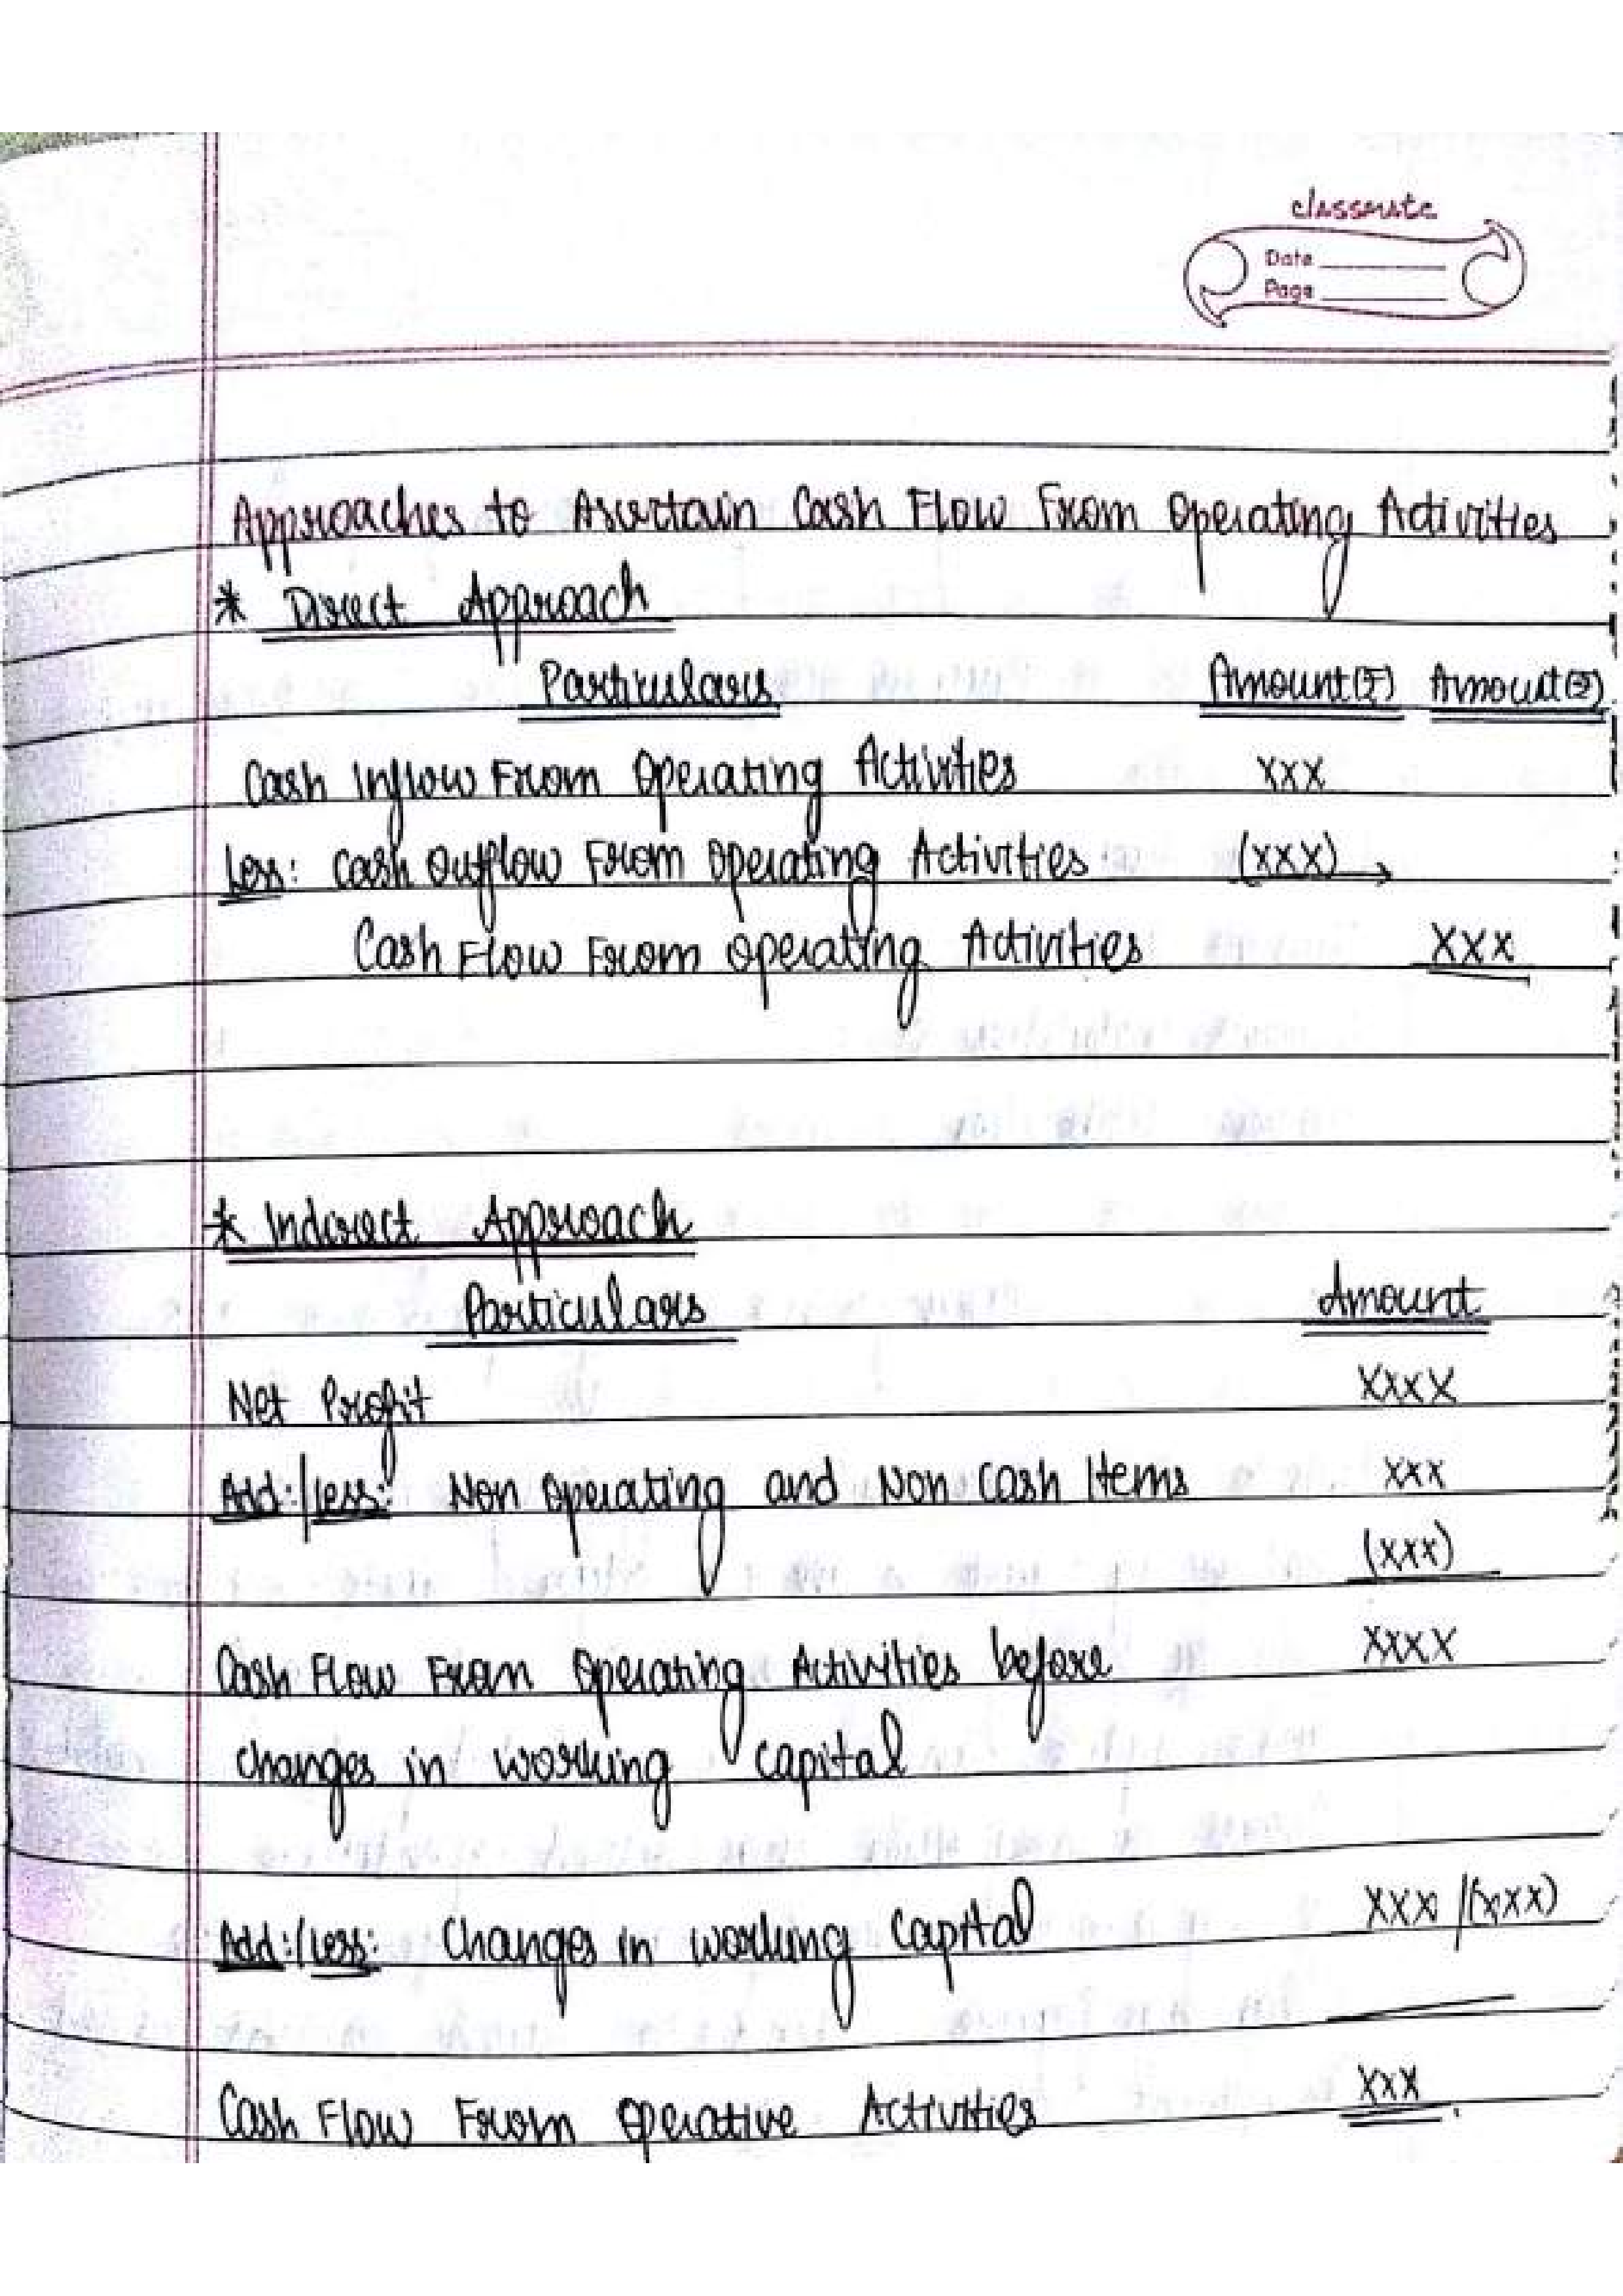 classmate
Date
Page
Approaches to Ascertain Cash Flow From Operating Activities
* Direct Approach
Particulars Amount(₹) Amount(₹)
Cash Inflow From Operating Activities xxx
Less: Cash Outflow From Operating Activities (xxx)
Cash Flow From Operating Activities xxx
* Indirect Approach
Particulars Amount
Net Profit xxxx
Add:/Less: Non Operating and Non Cash Items xxx
(xxx)
Cash Flow From Operating Activities before xxxx
changes in working capital
Add:/Less: Changes in working Capital xxx/(xxx)
Cash Flow From Operative Activities xxx